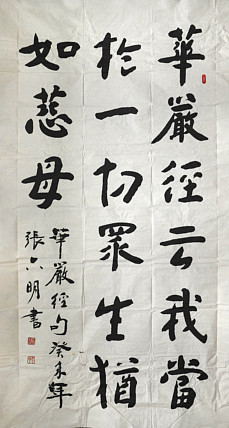 華嚴經云我當
於一切眾生猶
如慈母
華嚴經句癸未年
張六明書